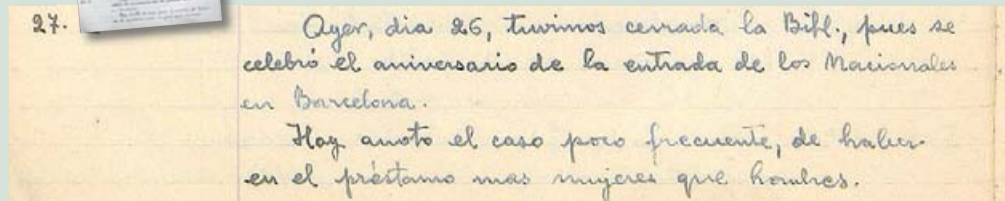 27.
Ayer, dia 26, tuvimos cerrada la Bibl., pues se
celebró el aniversario de la entrada de los Nacionales
en Barcelona.
Hoy anoto el caso poco frecuente, de haber
en el préstamo mas mujeres que hombres.